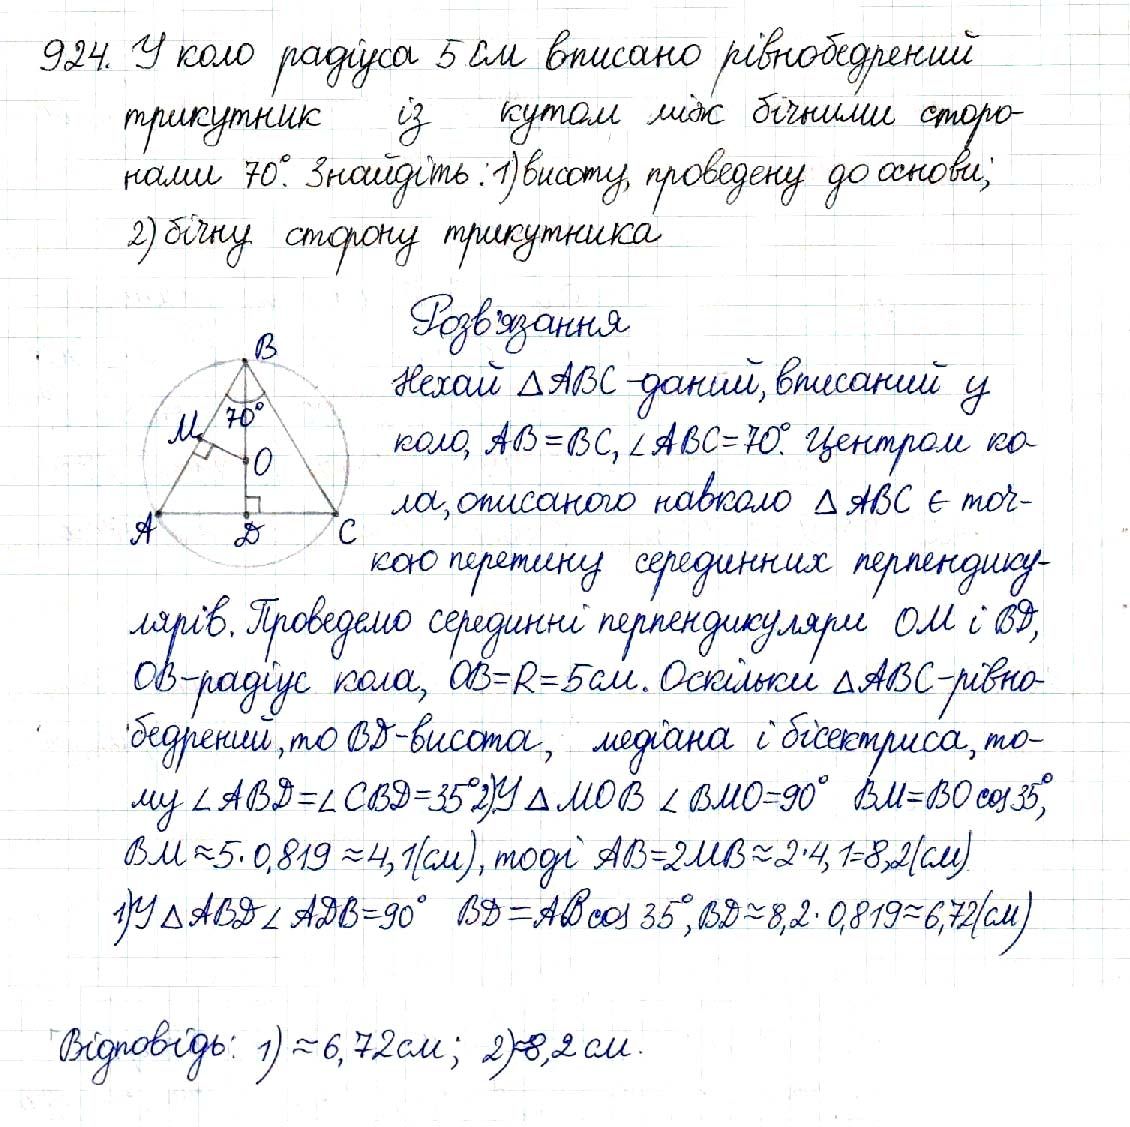 924. У коло радіуса 5 см вписано рівнобедрений
трикутник із кутом між бічними сторо-
нами 70°. Знайдіть: 1) висоту, проведену до основи;
2) бічну сторону трикутника
Розв'язання
B
70°
M
O
A
D
C
Нехай △ABC - даний, вписаний у
коло, AB = BC, ∠ABC = 70°. Центром ко-
ла, описаного навколо △ABC є точ-
кою перетину серединних перпендику-
лярів. Проведемо серединні перпендикуляри OM і BD,
OB - радіус кола, OB = R = 5 см. Оскільки △ABC - рівно-
бедрений, то BD - висота, медіана і бісектриса, то-
му ∠ABD = ∠CBD = 35° 2) У △MOB ∠BMO = 90° BM = BO cos 35°,
BM ≈ 5 · 0,819 ≈ 4,1 (см), тоді AB = 2MB ≈ 2 · 4,1 = 8,2 (см)
1) У △ABD ∠ADB = 90° BD = AB cos 35°, BD ≈ 8,2 · 0,819 ≈ 6,72 (см)
Відповідь: 1) ≈ 6,72 см; 2) ≈ 8,2 см.